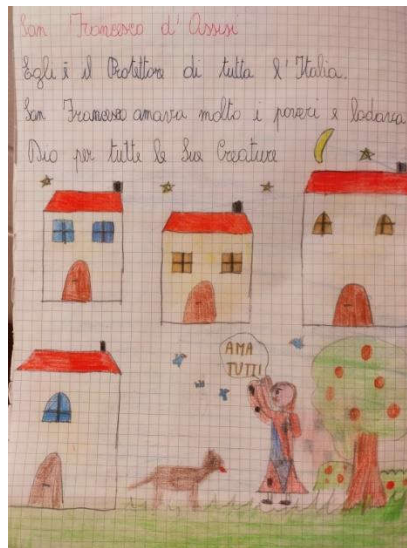 San Francesco d'Assisi
Egli è il Protettore di tutta l'Italia.
San Francesco amava molto i poveri e lodava
Dio per tutte le Sue Creature
AMA
TUTTI